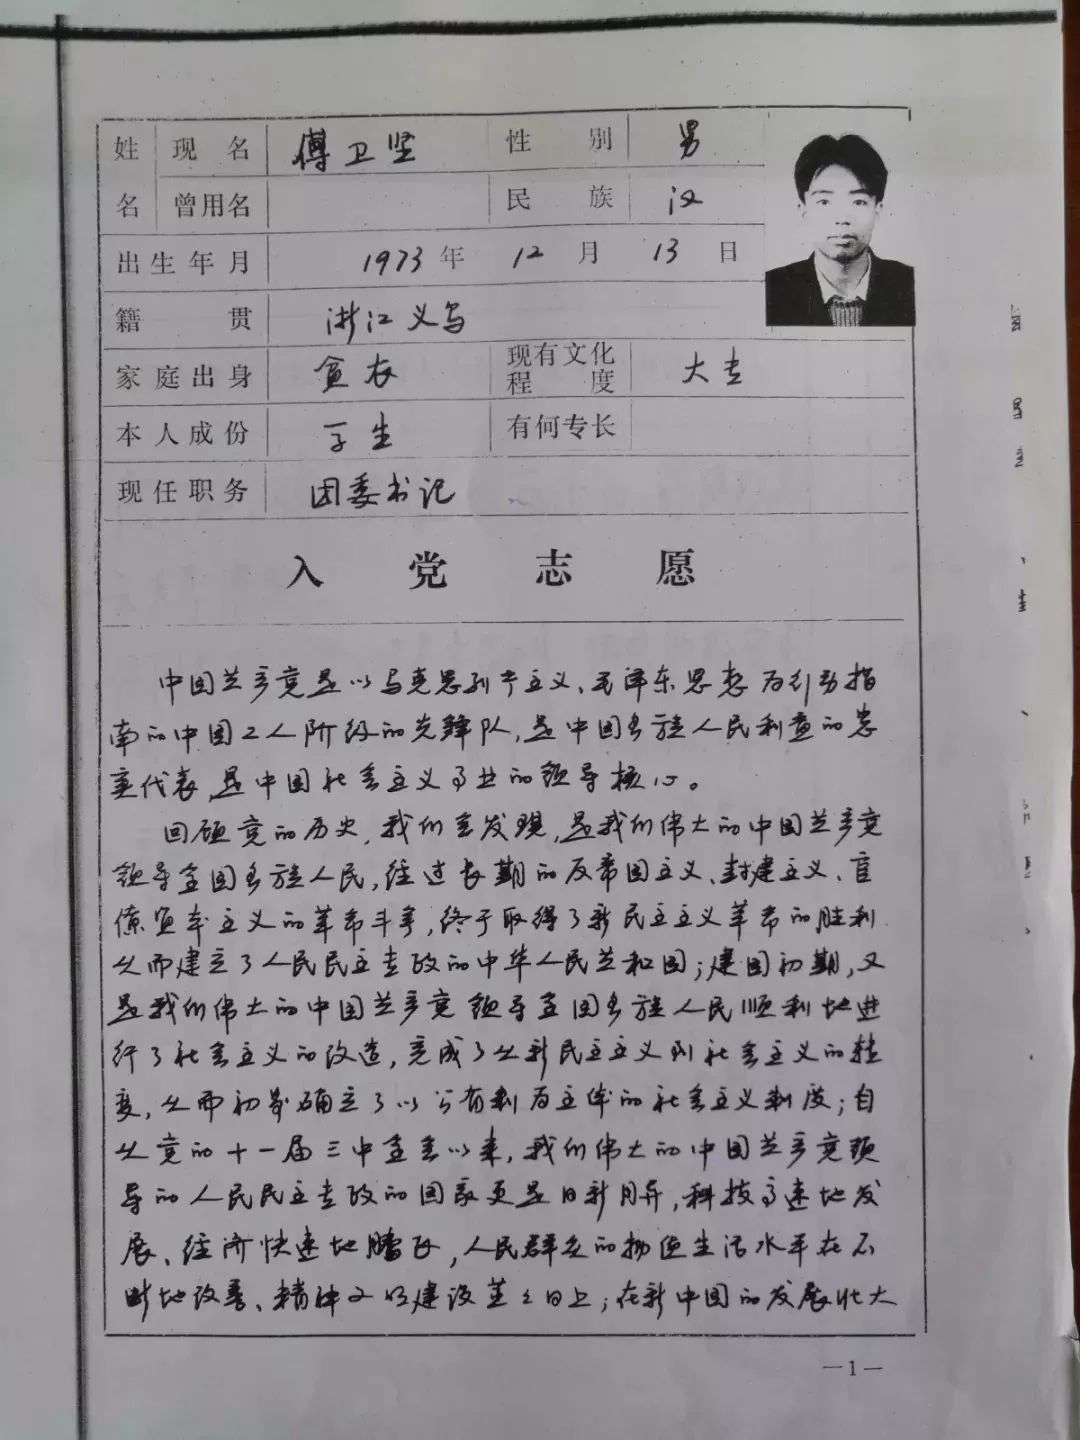 姓名 现名 傅卫坚 性别 男
曾用名 民族 汉
出生年月 1973年 12月 13日
籍贯 浙江义乌
家庭出身 贫农 现有文化程度 大专
本人成份 学生 有何专长
现任职务 团委书记
入党志愿
中国共产党是以马克思列宁主义、毛泽东思想为行动指
南的中国工人阶级的先锋队,是中国各族人民利益的忠
实代表,是中国社会主义事业的领导核心。
回顾党的历史,我们会发现,是我们伟大的中国共产党
领导全国各族人民,经过长期的反帝国主义、封建主义、官
僚资本主义的革命斗争,终于取得了新民主主义革命的胜利
从而建立了人民民主专政的中华人民共和国;建国初期,又
是我们伟大的中国共产党领导全国各族人民顺利地进
行了社会主义的改造,完成了从新民主主义到社会主义的转
变,从而初步确立了以公有制为主体的社会主义制度;自
从党的十一届三中全会以来,我们伟大的中国共产党领
导的人民民主专政的国家更是日新月异,科技高速地发
展、经济快速地腾飞,人民群众的物质生活水平在不
断地改善、精神文明建设蒸蒸日上;在新中国的发展壮大
—1—